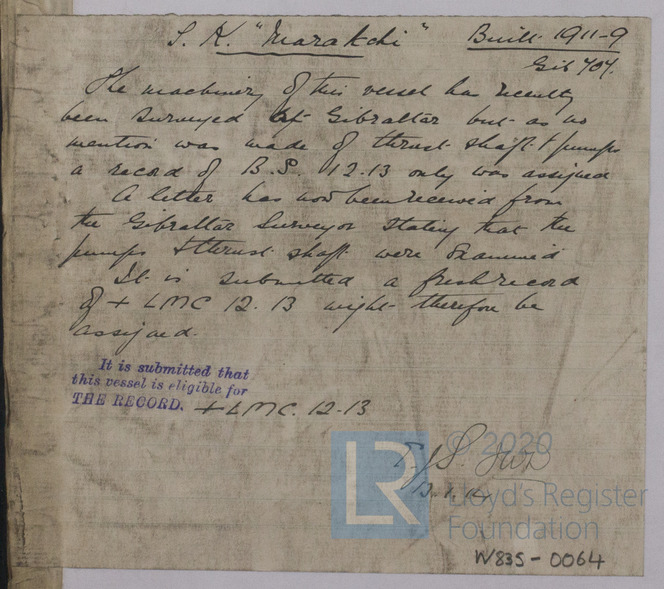 S. K. "Marakchi" Built 1911-9
Gib 704.
The machinery of this vessel has recently
been surveyed at Gibraltar but as no
mention was made of thrust shaft & pumps
a record of B.S. 12.13 only was assigned
A letter has now been received from
the Gibraltar Surveyor stating that the
pumps & thrust shaft were examined
It is submitted a fresh record
of + LMC 12.13 might therefore be
assigned.
It is submitted that
this vessel is eligible for
THE RECORD. + LMC. 12.13
LR
© 2020
Lloyd's Register
Foundation
W835-0064